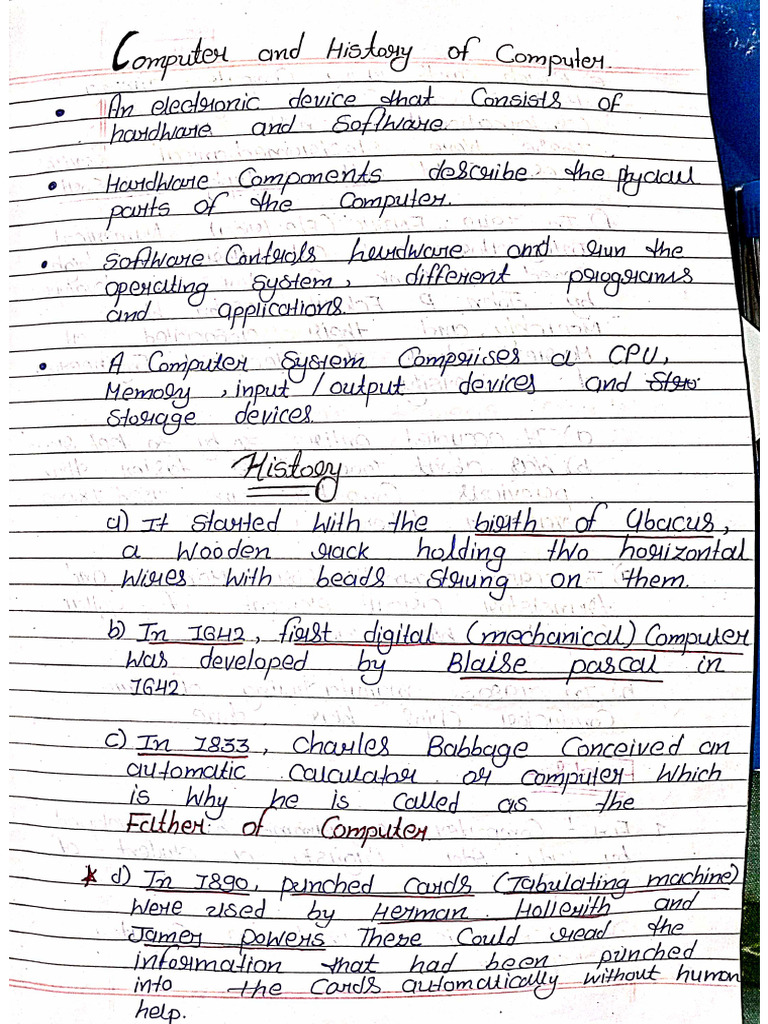 Computer and History of Computer.
• An electronic device that Consists of
hardware and Software.
• Hardware Components describe the
parts of the Computer.
• Software Controls hardware and run the
operating System, different programs
and applications.
• A Computer System Comprises a CPU,
Memory, input / output devices and Sto
Storage devices.
History
a) It started with the birth of Abacus,
a wooden rack holding two horizontal
wires with beads strung on them.
b) In 1642, first digital (mechanical) Computer
was developed by Blaise pascal in
1642
c) In 1833, Charles Babbage Conceived an
automatic calculator or computer which
is why he is called as the
Father of Computer
* d) In 1890, punched cards (Tabulating machine)
were used by Herman Hollerith and
James powers These Could read the
information that had been punched
into the Cards automatically without human
help.